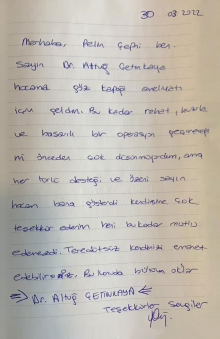 30 03.2022
Merhaba, Pelin Çephi ben.
Sayın Dr. Altuğ Çetinkaya
hocama göz kapağı ameliyatı
için geldim. Bu kadar rahat,
ve başarılı bir operasyon
mi önceden çok düşünmüyordum, ama
her türlü desteği ve özeni sayın
hocam bana gösterdi kendisine çok
teşekkür ederim beni bu kadar mutlu
edemezdi. Tereddütsüz kendinizi emanet
edebilirsiniz. Bu konuda
=> Dr. Altuğ ÇETİNKAYA <=
Teşekkürler Sevgiler